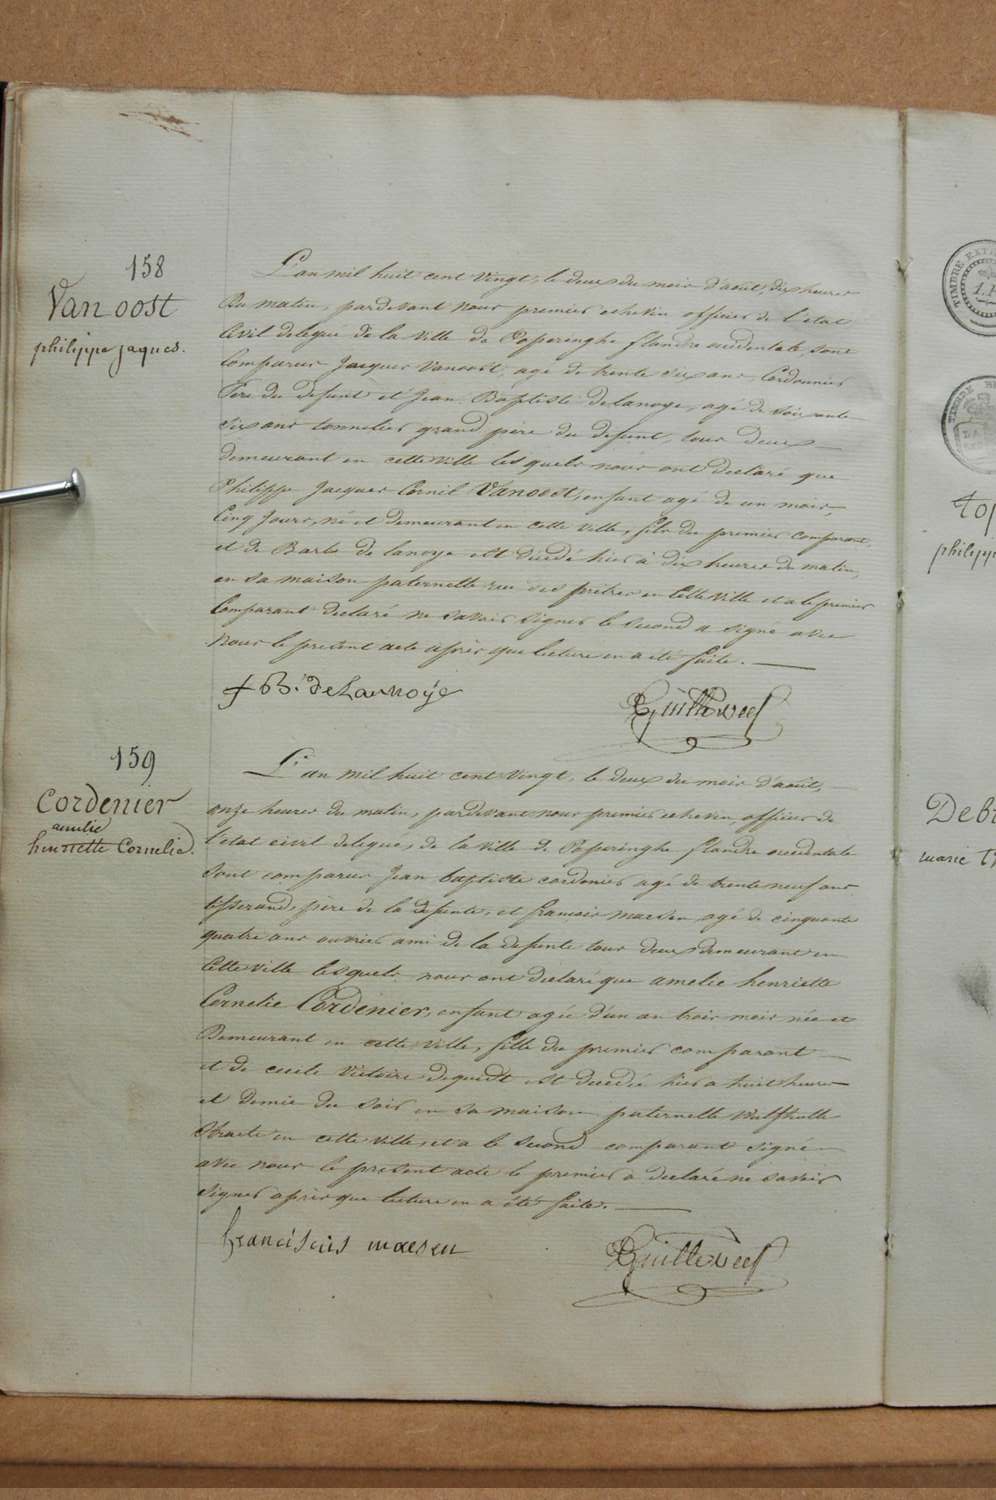 158
Vanoost
philippe jaques.
L'an mil huit cent vingt, le deux du mois d'août, dix heures
Du matin, pardevant nous premier echevin officier de l'etat
Civil delegué de la ville de Poperinghe flandre occidentale, sont
Comparus Jacques Vanoost, agé de trente six ans, Cordonnier
Père du defunt et Jean Baptiste Delanoye, agé de soixante
six ans tonnelier grand père du defunt, tous deux
demeurant en cette ville lesquels nous ont declaré que
Philippe Jacques Cornil Vanoost, enfant agé de un mois,
Cinq Jours, né et demeurant en cette ville, fils du premier comparant,
et de Barbe de lanoye est décédé hier à dix heures du matin,
en sa maison paternelle rue des prêtres en Cette Ville et a le premier
Comparant declaré ne savoir signer le second a signé avec
Nous le present acte après que lecture en a été faite.
J B: de Lannoÿe
159
Cordenier
amelie
henriette Cornelie.
L'an mil huit cent vingt, le deux du mois d'août,
onze heures du matin, pardevant nous premier echevin officier de
l'etat civil delegué, de la ville de Poperinghe flandre occidentale
Sont comparus Jean baptiste cordenier agé de trente neuf ans
tisserand, père de la defunte, et francois maesen agé de cinquante
quatre ans ouvrier ami de la defunte tous deux demeurant en
Cette Ville lesquels nous ont declaré que amelie henriette
Cornelie Cordenier, enfant agée d'un an trois mois née et
Demeurant en cette ville, fille du premier comparant
et de cecile Victoire dequidt est decedée hier a huit heures
et demie du soir en sa maison paternelle
Straete en cette ville, et a le second comparant signé
avec nous le present acte le premier a declaré ne savoir
signer après que lecture en a été faite.
franciscus maesen
TIMBRE
TIMBRE
philipp
marie